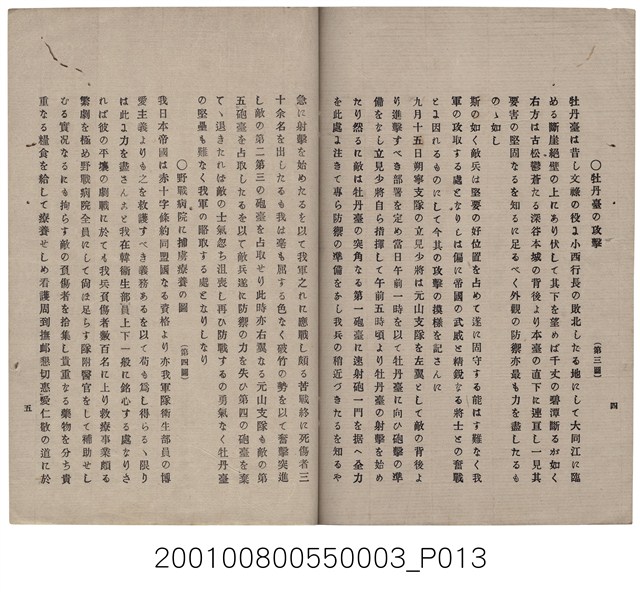 〇牡丹臺の攻擊　（第三圖）
牡丹臺は昔し文祿の役よ小西行長の敗北したる地にして大同江に臨
める斷崖絕壁の上にあり伏して其下を望めば千丈の碧潭斷るが如く
右方は古松鬱蒼たる深谷本城の背後より本臺の直下に連亘し一見其
要害の堅固なるを知るに足るべく外觀の防禦亦最も力を盡したるも
のゝ如し
斯の如く敵兵は堅要の好位置を占めて遂に固守する能はす難なく我
軍の攻取する處となりしは偏に帝國の武威と精銳なる將士との奮戰
とよ因れるものにして今其の攻擊の摸樣を記さんに
九月十五日朔寧支隊の立見少將は元山支隊を左翼として敵の背後よ
り進擊すべき部署を定め當日午前一時を以て牡丹臺に向ひ砲擊の準
備をなし立見少將自ら指揮して午前五時頃より牡丹臺の射擊を始め
たり然るに敵は牡丹臺の突角なる第一砲臺に速射砲一門を据へ全力
を此處よ注きて專ら防禦の準備をなし我兵の稍近づきたるを知るや
四
急に射擊を始めたるを以て我軍之れに應戰し頗る苦戰終に死傷者三
十余名を出したるも我は毫も屈する色なく破竹の勢を以て奮擊突進
し敵の第二第三の砲臺を占取せり此時亦右翼なる元山支隊も敵の第
五砲臺を占取したるを以て敵兵遂に防禦の力を失ひ第四の砲臺を棄
てゝ退きたれば敵の士氣忽ち沮喪し再ひ防戰するの勇氣なく牡丹臺
の堅壘も難なく我軍の略取する處となりしなり
〇野戰病院に捕虜療養の圖　（第四圖）
我日本帝國は赤十字條約同盟國なる資格より亦我軍隊衛生部員の博
愛主義よりも之を救護すべき義務あるを以て苟も爲し得らるゝ限り
は此よ力を盡さんよと我在韓衛生部員上下一般に銘心する處なりさ
れば彼の平壤の劇戰に於ても我兵負傷者數百名に上り救療事業頗る
繁劇を極め野戰病院全員にして尙ほ足らす隊附醫官をして補助せし
むる實况なるにも拘らす敵の負傷者を拾集し貴重なる藥物を分ち貴
重なる糧食を給して療養せしめ看護周到撫卹懇切惠愛仁敬の道に於
五
200100800550003_P013